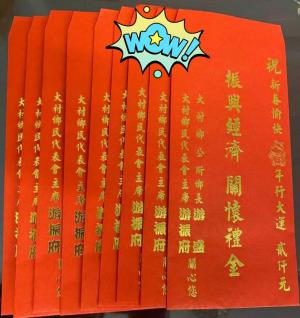 WOW!
祝 新春愉快 年行大運 貳仟元
振興經濟 關懷禮金
大村鄉公所鄉長 游盛
大村鄉民代表會主席 游振府 關心您
大村鄉民代表會主席 游振府 關心您
大村鄉民代表會主席 游振府
大村鄉民代表會主席 游振府
大村鄉民代表會主席 游振府
大村鄉民代表會主席 游振府
大村鄉民代表會主席 游振府
大村鄉民代表會主席 游振府
大村鄉民代表會主席 游振府